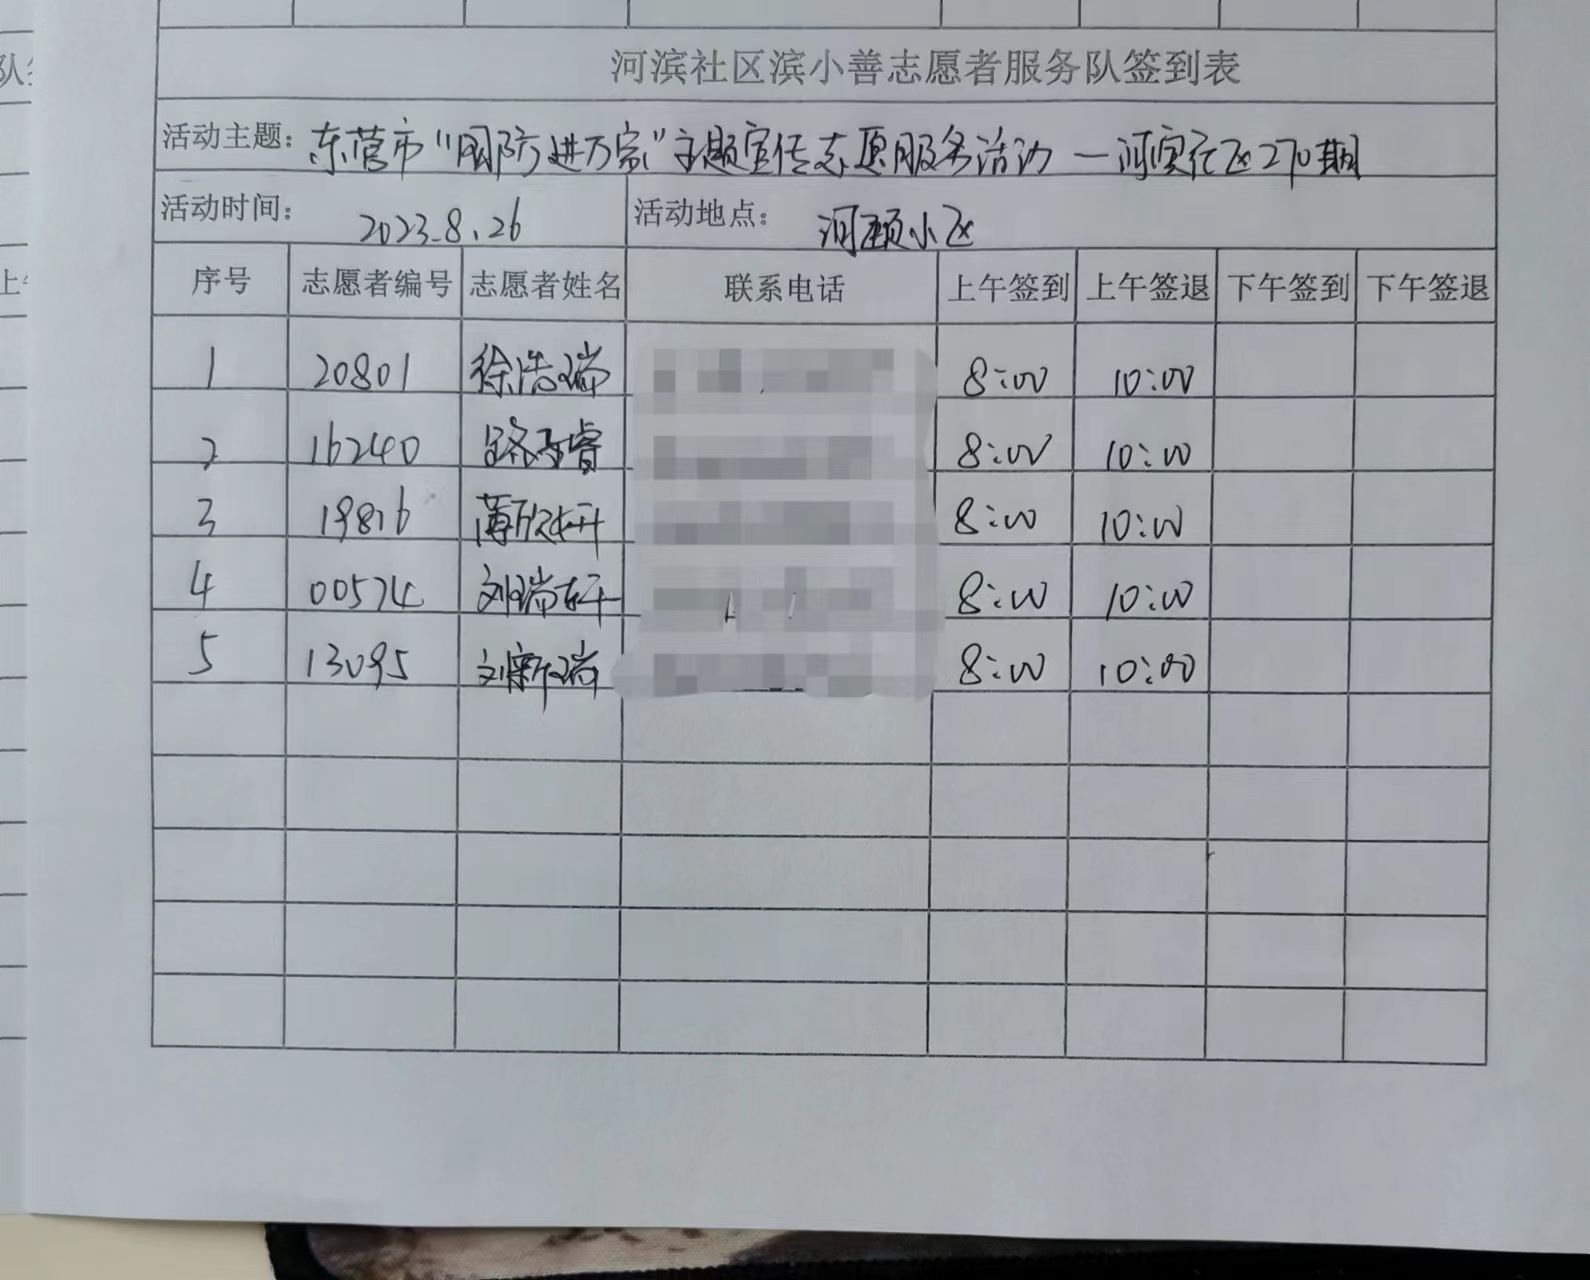 河滨社区滨小善志愿者服务队签到表
活动主题：东营市“国防进万家”主题宣传志愿服务活动—河滨社区270期
活动时间： 2023.8.26 活动地点： 河颐小区
序号 志愿者编号 志愿者姓名 联系电话 上午签到 上午签退 下午签到 下午签退
1 20801 徐浩瑞 8:00 10:00
2 16240 路子睿 8:00 10:00
3 19816 薄欣妍 8:00 10:00
4 00574 刘瑞轩 8:00 10:00
5 13095 刘新瑞 8:00 10:00